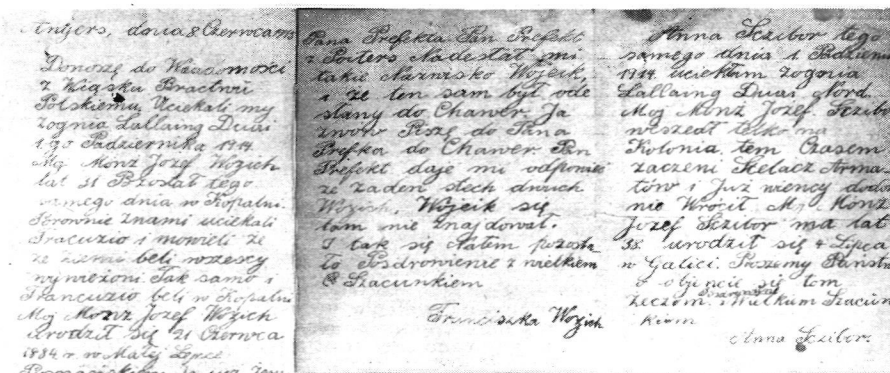 Angers, dnia 8 Czerwca
Donoszę do Wiadomości
z Wiąsku Bractwu
Polskiemu Uciekali my
zognia Lallaing Duai
1 go Padziernika 1914
Mój Monz Jozef Wozich
lat 31 Pozostał tego
samego dnia w Kopalni.
Równie znami uciekali
Francuzio i mowieli ze
ze ziemi beli wszescy
wywiezoni. Tak samo i
Francuzio beli w Kopalni
Mój Monz Jozef Wozich
urodził się 21 Czerwca
1884 r. w Małej Lepce
Pana Prefekta Pan Prefekt
z Poiters Nadestał mi
takie Nazwisko Wojcik,
i ze ten sam był ode
słany do Chawer. Ja
znwów Piszę do Pana
Prefka do Chawer. Pan
Prefekt daje mi odpowieć
ze zaden stech dwuch
Wozich, Wojcik się
tam nie znajdował.
I tak się statem pozosta-
ło Posdrowienie z wielkiem
Szacunkiem
Franciszka Wozich
Anna Scibor tego
samego dnia 1. Padzierni
1914. uciekłam zognia
Lallaing Duai Nord.
Mój Monz Jozef. Scibor
weszedł telko na
Kolonia. tem Czasem
zaczeni Skelacz Arma
tów i Juz wiency dodo
nie Wrócił. Mój Monz
Jozef Scibor ma lat
38. urodził się 4 Lipca
w Galici. Proszemy Państw
o objencie się tom
zeczom. i Wielkum Szacun
kiem
Anna Scibor.